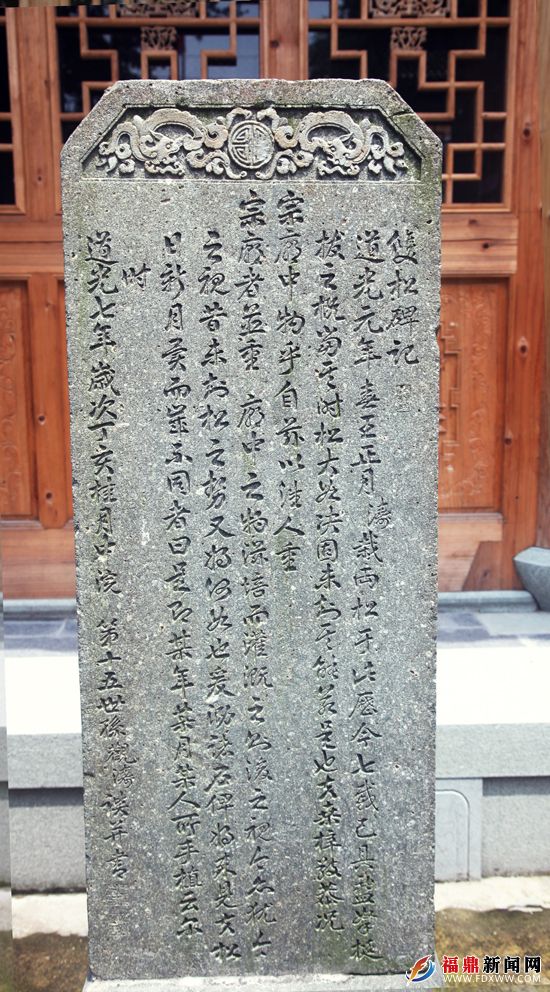 雙松碑記
道光元年春王正月濤栽兩松于此歷今七載已具挺
拔之概當其時松大如未知其能若是也夫桑梓敬恭况
宗廟中物乎自茲以往人重
宗廟者並重 廟中之物深培而灌溉之則後之視今亦猶今
之視昔未知松之勢又將何如也爰泐諸石俾將來見夫松
日新月異而歲不同者曰是即某年某月某人所手植云尔
時
道光七年歲次丁亥桂月中浣 第十五世孫觀濤譔并書
福鼎新闻网
WWW.FDXWW.COM